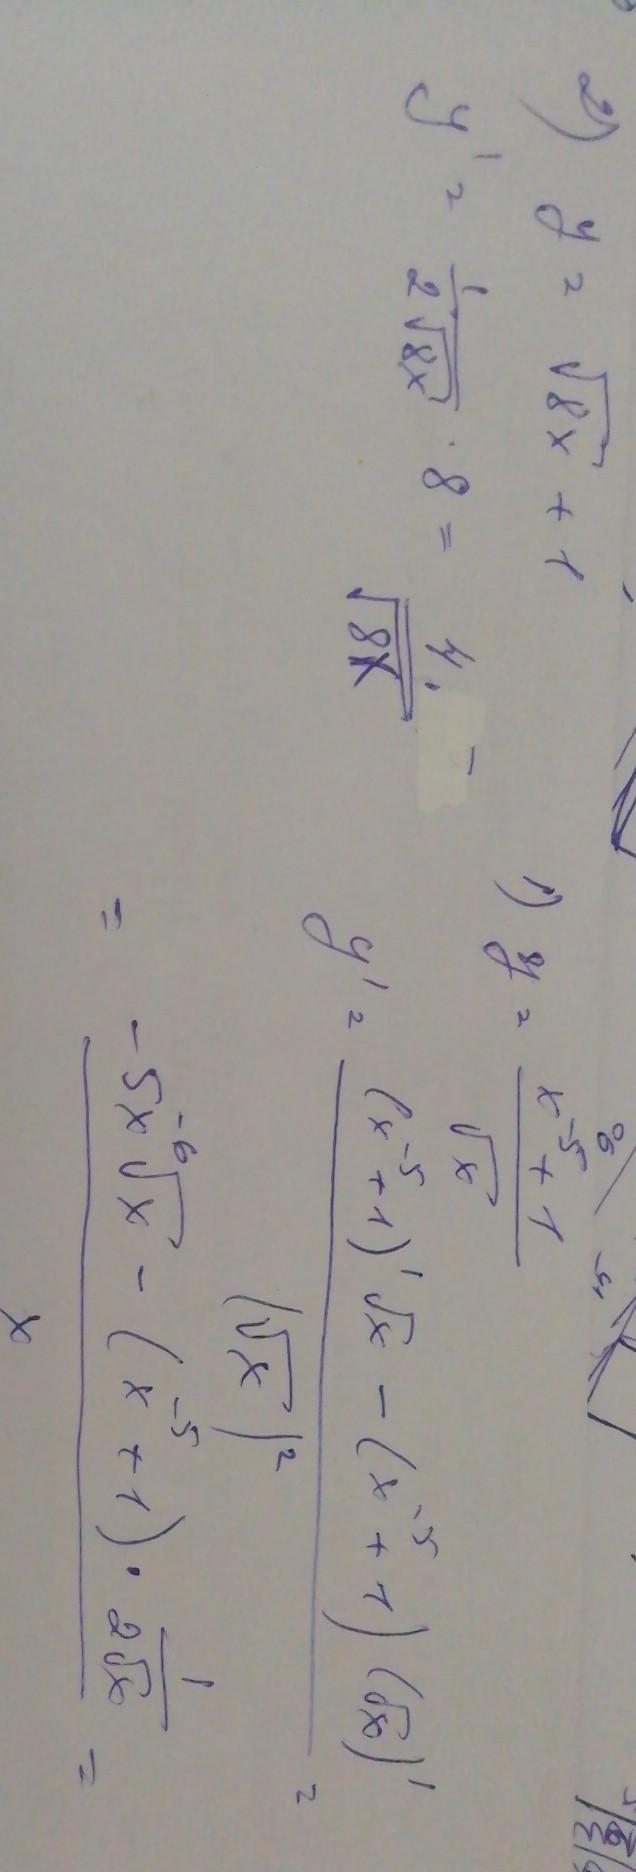 2) y = √8x + 1
y' = 1/(2√8x) · 8 = 4/√8x
1) y = (x⁻⁵ + 1)/√x
y' = ((x⁻⁵ + 1)' √x - (x⁻⁵ + 1) (√x)')/(√x)² =
= (-5x⁻⁶ √x - (x⁻⁵ + 1) · 1/(2√x))/x =